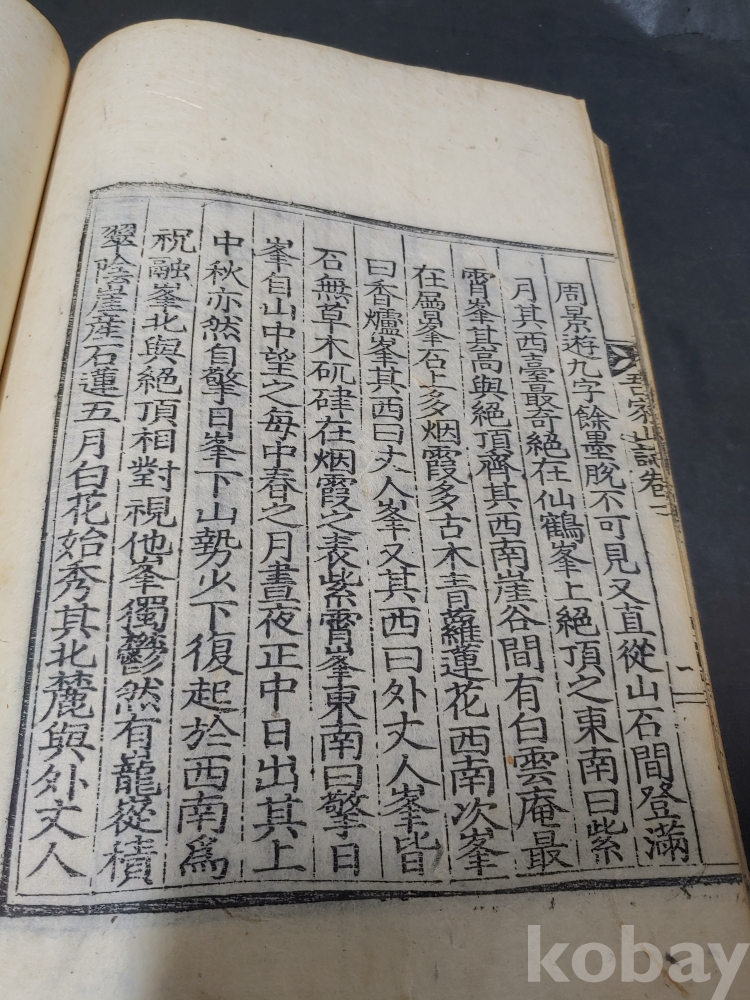 周景遊九字餘墨脫不可見又直從山石間登滿
月其西臺最奇絕在仙鶴峯上絕頂之東南曰紫
霄峯其高與絕頂齊其西南崖谷間有白雲庵最
在㞕峯石上多烟霞多古木青蘿蓮花西南次峯
曰香爐峯其西曰丈人峯又其西曰外丈人峯皆
石無草木矹硉在烟霞之表紫霄峯東南曰擎日
峯自山中望之每中春之月晝夜正中日出其上
中秋亦然自擎日峯下山勢少下復起於西南爲
祝融峯北與絕頂相對視他峯獨鬱然有巃嵸積
翠陰崖産石蓮五月白花始秀其北麓與外丈人
山誌卷一
kobay